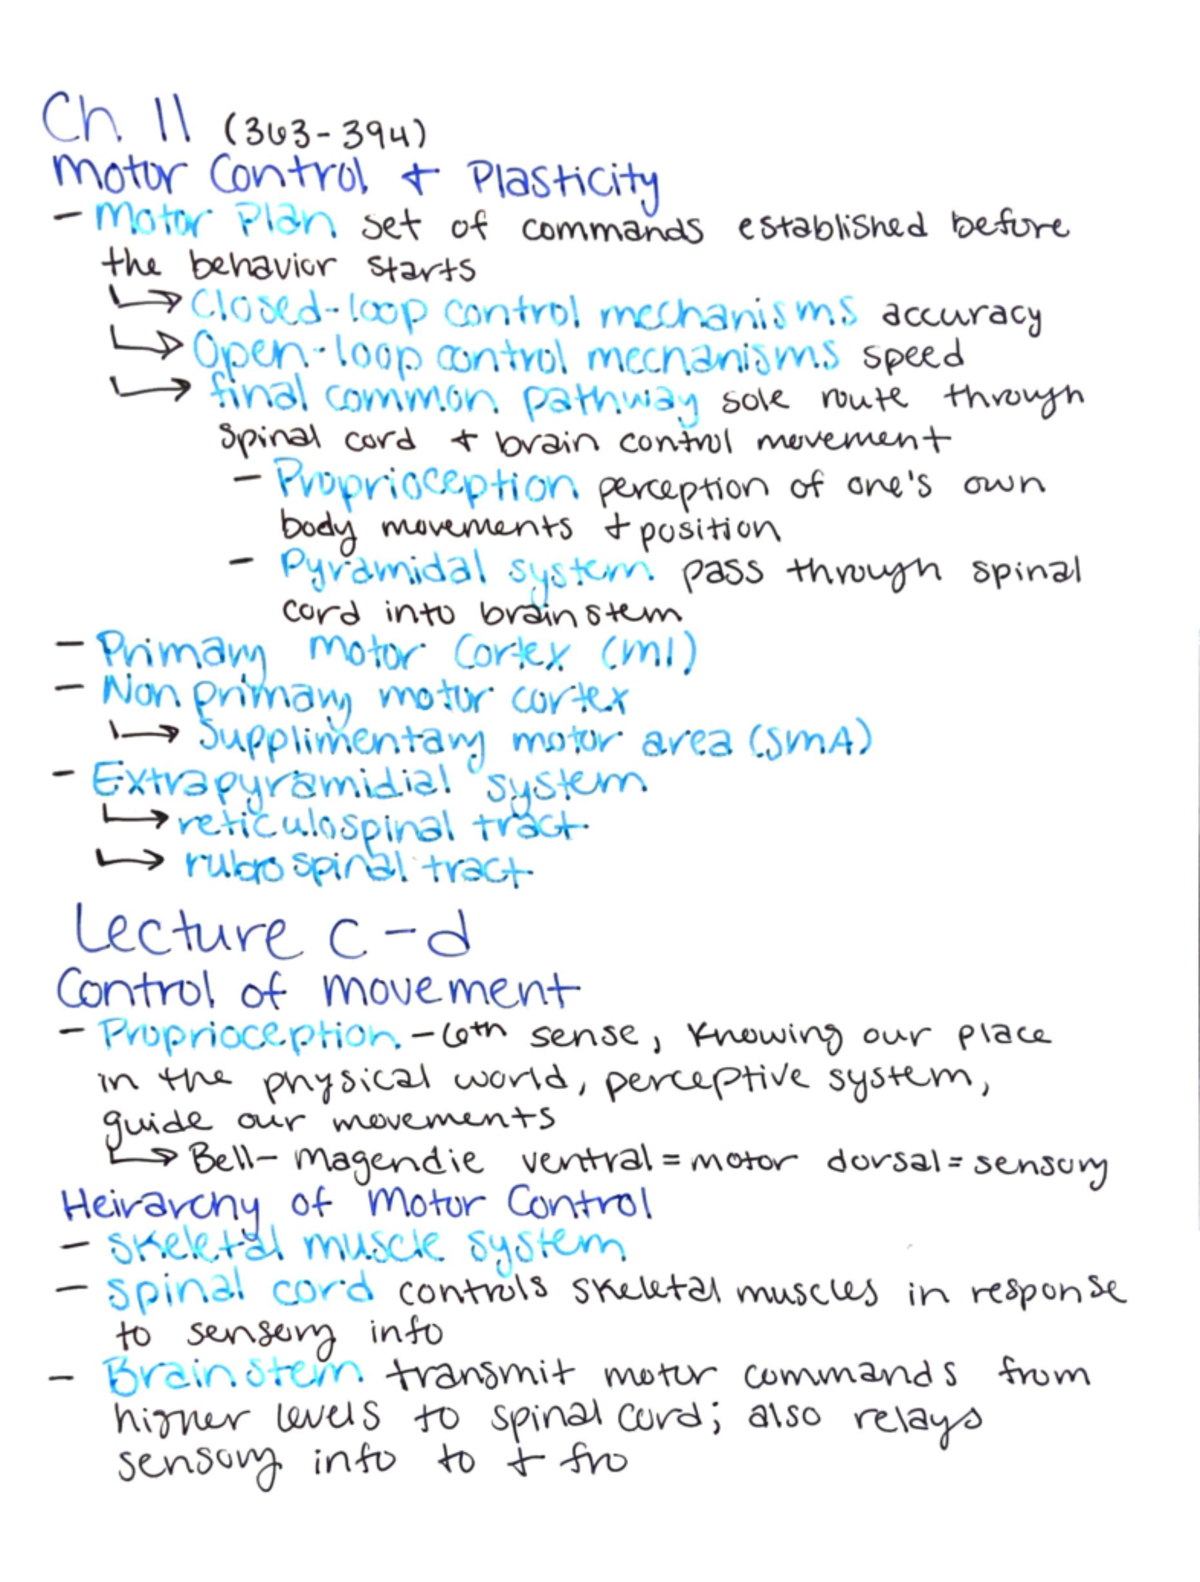 Ch. 11 (363-394)
Motor Control + Plasticity
- Motor Plan set of commands established before
the behavior starts
↳ Closed-loop control mechanisms accuracy
↳ Open-loop control mechanisms speed
↳ final common pathway sole route through
spinal cord + brain control movement
- Proprioception perception of one's own
body movements + position
- Pyramidal system pass through spinal
cord into brainstem
- Primary motor Cortex (M1)
- Non primary motor cortex
↳ Supplimentary motor area (SMA)
- Extrapyramidial system
↳ reticulospinal tract
↳ rubrospinal tract
Lecture c-d
Control of movement
- Proprioception - 6th sense, Knowing our place
in the physical world, perceptive system,
guide our movements
↳ Bell-Magendie ventral = motor dorsal = sensory
Heirarchy of Motor Control
- Skeletal muscle system
- Spinal cord controls skeletal muscles in response
to sensory info
- Brainstem transmit motor commands from
higher levels to spinal cord; also relays
sensory info to + fro